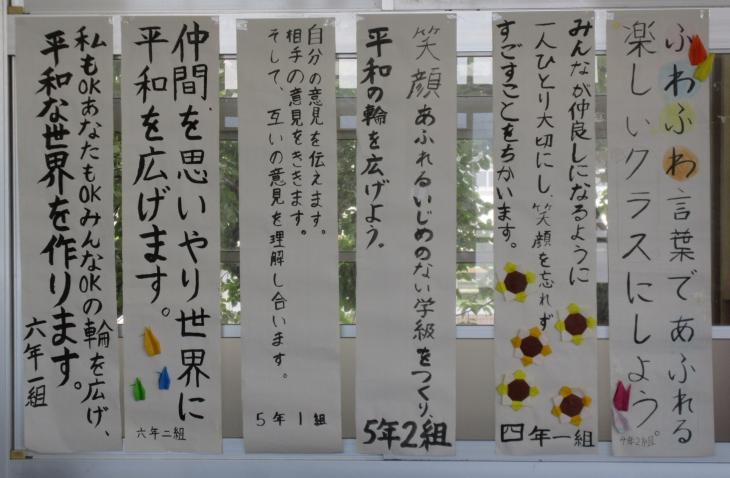 ふわふわ言葉であふれる
楽しいクラスにしよう。
4年2組
みんなが仲良しになるように
一人ひとり大切にし、笑顔を忘れず
すごすことをちかいます。
四年一組
笑顔あふれるいじめのない学級をつくり、
平和の輪を広げよう。
5年2組
自分の意見を伝えます。
相手の意見をききます。
そして、互いの意見を理解し合います。
5年1組
仲間を思いやり世界に
平和を広げます。
六年二組
私もOKあなたもOKみんなOKの輪を広げ、
平和な世界を作ります。
六年一組